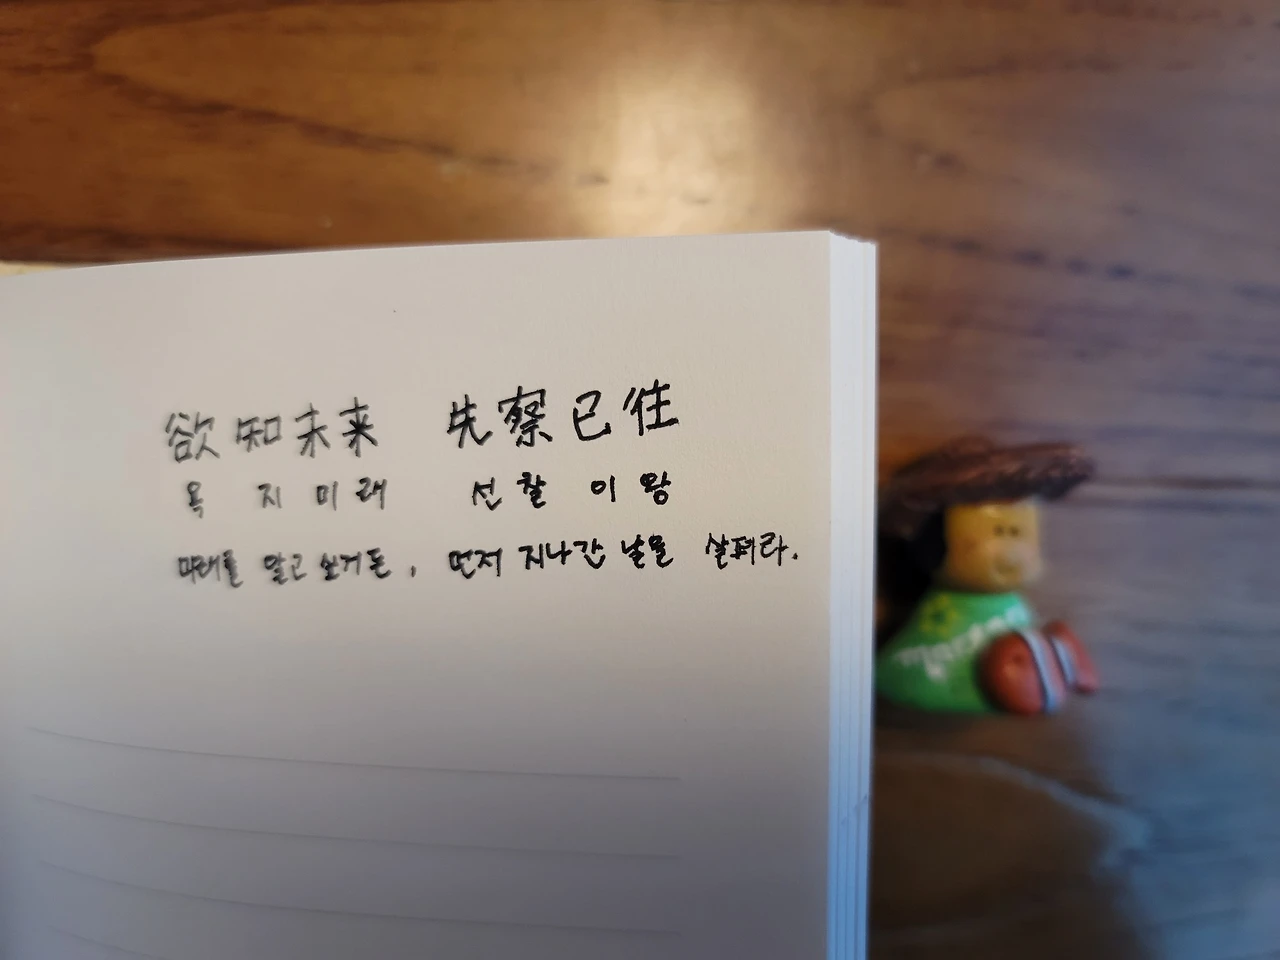 欲知未来 先察已往
욕 지 미 래 선 찰 이 왕
미래를 알고 싶거든, 먼저 지나간 날을 살펴라.